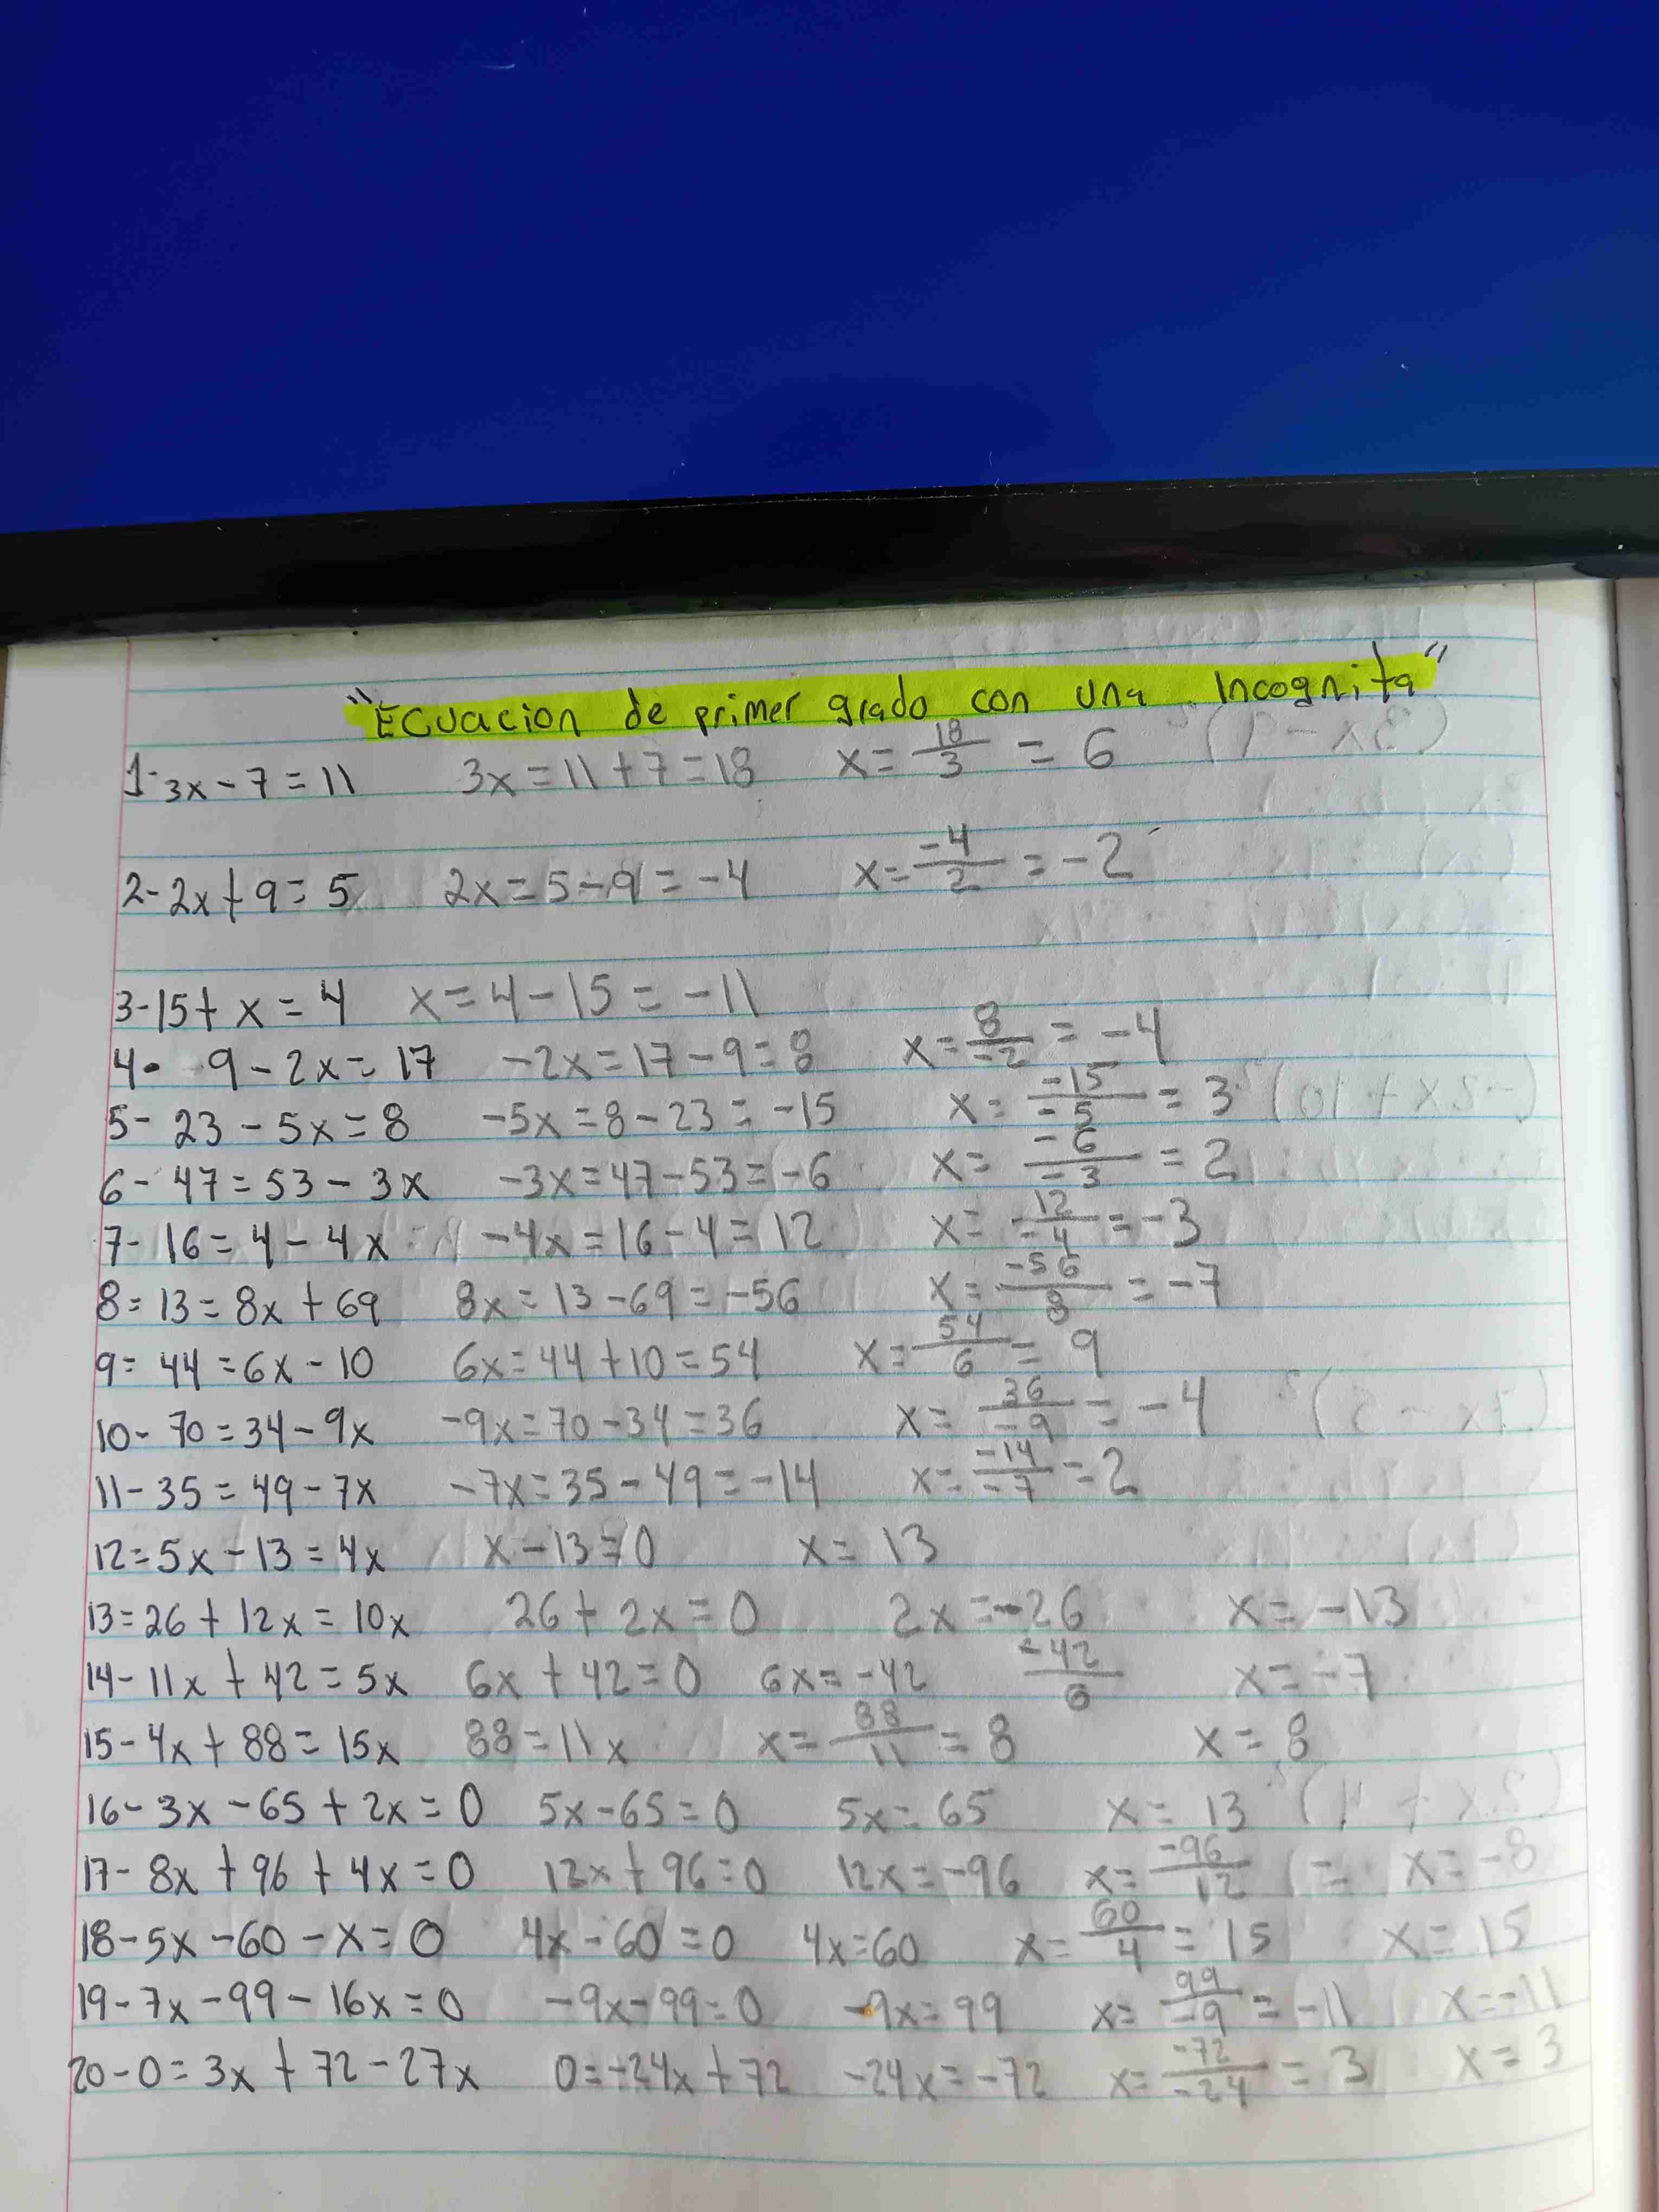 "Ecuacion de primer grado con una Incognita"
1- 3x - 7 = 11 3x = 11 + 7 = 18 x = 18/3 = 6
2- 2x + 9 = 5 2x = 5 - 9 = -4 x = -4/2 = -2
3- 15 + x = 4 x = 4 - 15 = -11
4- 9 - 2x = 17 -2x = 17 - 9 = 8 x = 8/-2 = -4
5- 23 - 5x = 8 -5x = 8 - 23 = -15 x = -15/-5 = 3
6- 47 = 53 - 3x -3x = 47 - 53 = -6 x = -6/-3 = 2
7- 16 = 4 - 4x -4x = 16 - 4 = 12 x = 12/-4 = -3
8= 13 = 8x + 69 8x = 13 - 69 = -56 x = -56/8 = -7
9= 44 = 6x - 10 6x = 44 + 10 = 54 x = 54/6 = 9
10- 70 = 34 - 9x -9x = 70 - 34 = 36 x = 36/-9 = -4
11- 35 = 49 - 7x -7x = 35 - 49 = -14 x = -14/-7 = 2
12= 5x - 13 = 4x x - 13 = 0 x = 13
13= 26 + 12x = 10x 26 + 2x = 0 2x = -26 x = -13
14- 11x + 42 = 5x 6x + 42 = 0 6x = -42 -42/6 x = -7
15- 4x + 88 = 15x 88 = 11x x = 88/11 = 8 x = 8
16- 3x - 65 + 2x = 0 5x - 65 = 0 5x = 65 x = 13
17- 8x + 96 + 4x = 0 12x + 96 = 0 12x = -96 x = -96/12 = x = -8
18- 5x - 60 - x = 0 4x - 60 = 0 4x = 60 x = 60/4 = 15 x = 15
19- 7x - 99 - 16x = 0 -9x - 99 = 0 -9x = 99 x = 99/-9 = -11 x = -11
20- 0 = 3x + 72 - 27x 0 = -24x + 72 -24x = -72 x = -72/-24 = 3 x = 3